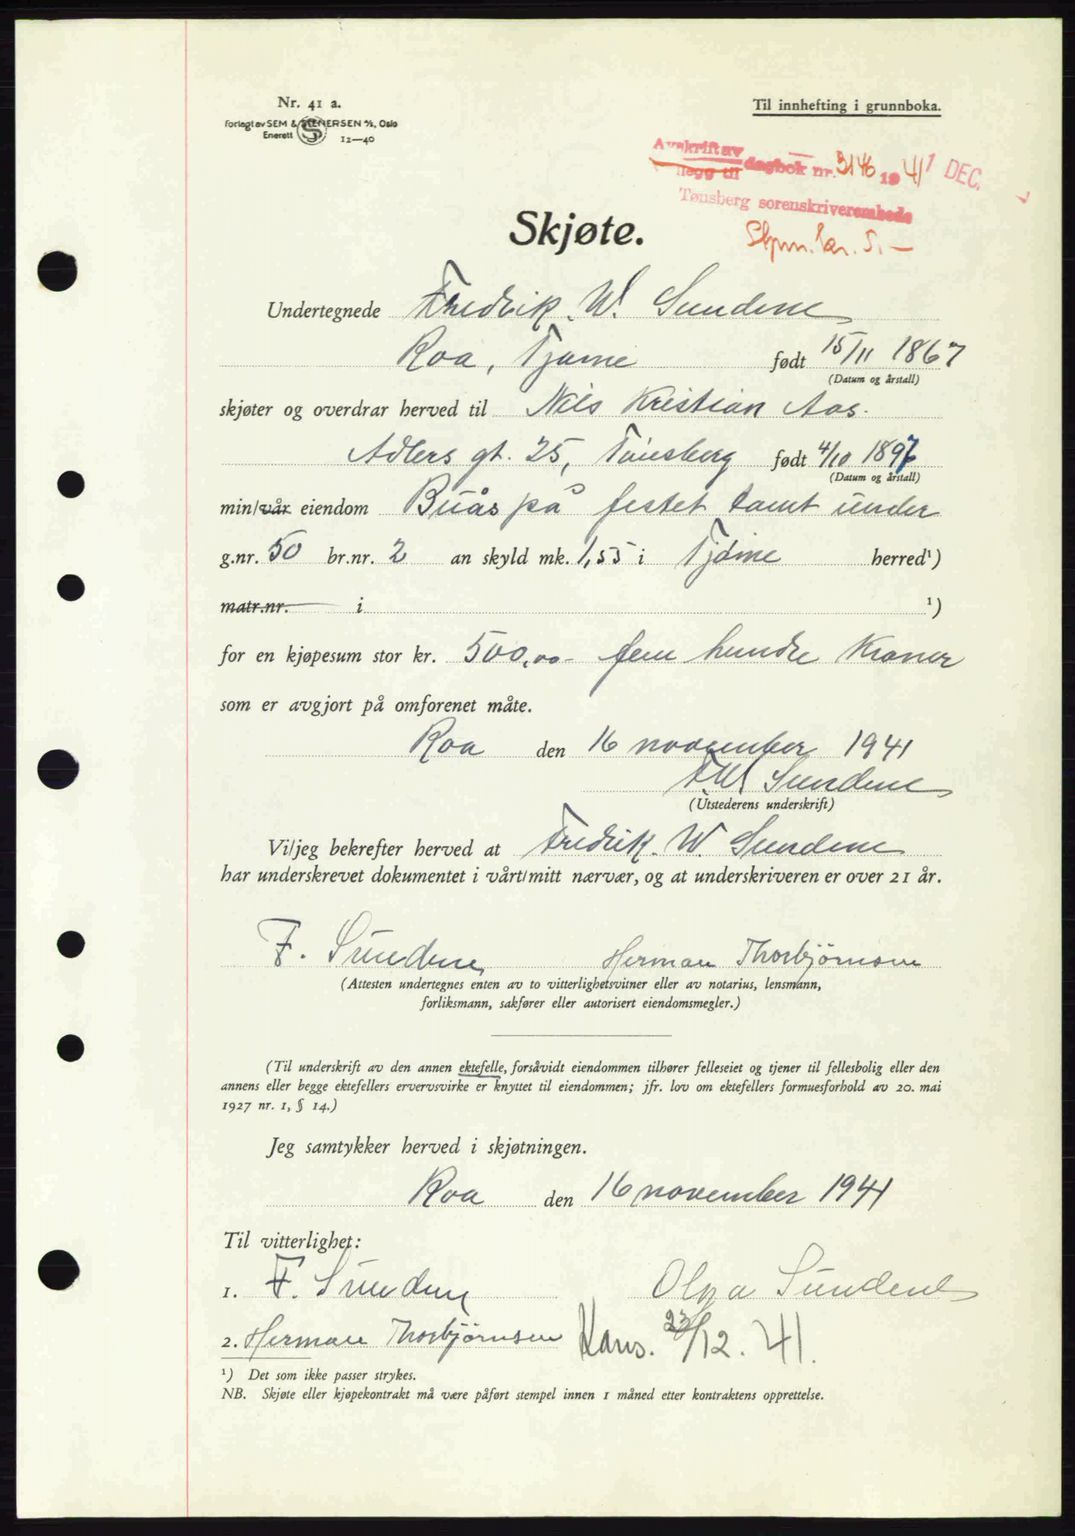 Nr. 41 a.
Forlagt av SEM & STENERSEN A/S, Oslo
Enerett 12—40
Til innhefting i grunnboka.
Avskrift av
dagbok nr. 3146 1941 1 DEC.
Tønsberg sorenskriverembede
Stpm. kr. 5.—
Skjøte.
Undertegnede Fredrik W. Sundene
Roa, Tjøme født 15/11 1867
(Datum og årstall)
skjøter og overdrar herved til Nils Kristian Aas.
Adlers gt. 25, Tönsberg født 4/10 1897
(Datum og årstall)
min/vår eiendom Buås på festet tomt under
g.nr. 50 br.nr. 2 an skyld mk. 1,55 i Tjöme herred¹)
matr.nr. i ¹)
for en kjøpesum stor kr. 500,00- fem hundre Kroner
som er avgjort på omforenet måte.
Roa den 16 november 1941
F.W. Sundene
(Utstederens underskrift)
Vi/jeg bekrefter herved at Fredrik. W. Sundene
har underskrevet dokumentet i vårt/mitt nærvær, og at underskriveren er over 21 år.
F. Sundene Herman Thorbjörnsen
(Attesten undertegnes enten av to vitterlighetsvitner eller av notarius, lensmann,
forliksmann, sakfører eller autorisert eiendomsmegler.)
(Til underskrift av den annen ektefelle, forsåvidt eiendommen tilhører felleseiet og tjener til fellesbolig eller den
annens eller begge ektefellers ervervsvirke er knyttet til eiendommen; jfr. lov om ektefellers formuesforhold av 20. mai
1927 nr. 1, § 14.)
Jeg samtykker herved i skjøtningen.
Roa den 16 november 1941
Til vitterlighet:
1. F. Sundene Olga Sundene
2. Herman Thorbjörnsen Kons. 23/12. 41.
¹) Det som ikke passer strykes.
NB. Skjøte eller kjøpekontrakt må være påført stempel innen 1 måned etter kontraktens opprettelse.